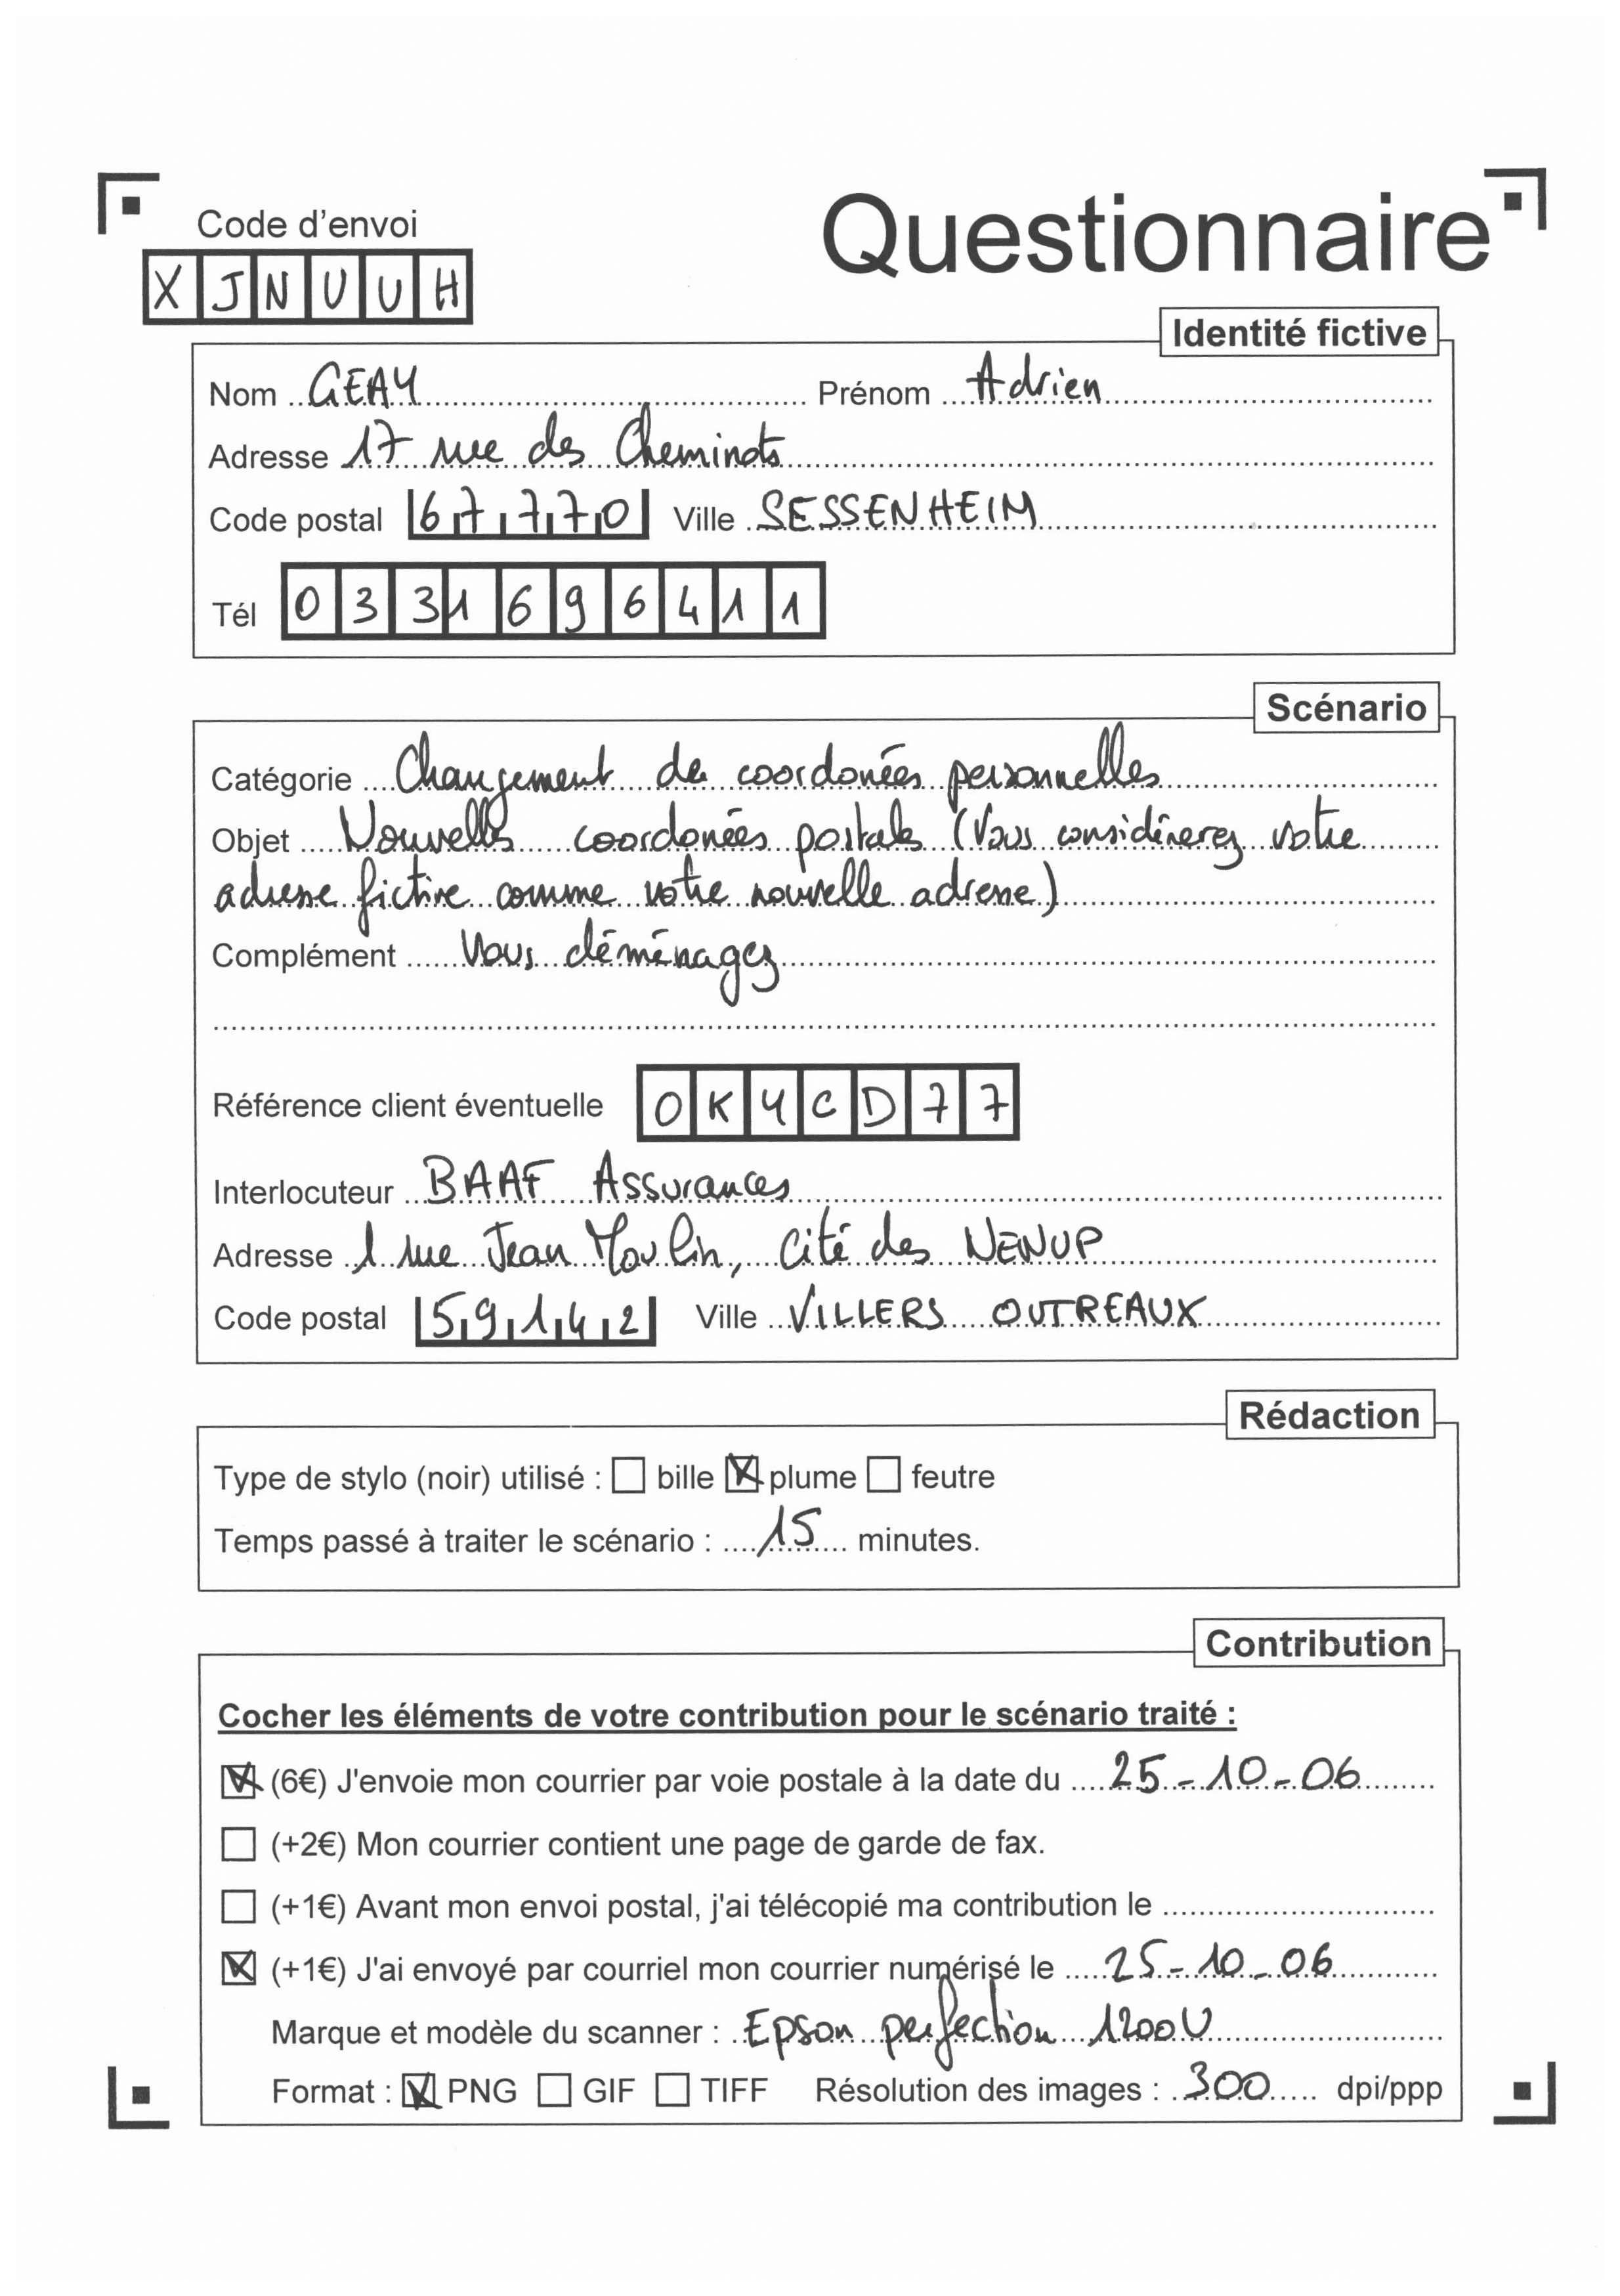 Code d'envoi
Questionnaire
XJNUUH
Identité fictive
Nom GEAY Prénom Adrien
Adresse 17 rue des Cheminots
Code postal 67770 Ville SESSENHEIM
Tél 0331696411
Scénario
Catégorie Changement de coordonées personnelles
Objet Nouvelles coordonées postales (Vous considérerez votre
adresse fictive comme votre nouvelle adresse)
Complément Vous déménagez
Référence client éventuelle OKYCD77
Interlocuteur BAAF Assurances
Adresse 1 rue Jean Moulin, Cité des NENUP
Code postal 59142 Ville VILLERS OUTREAUX
Rédaction
Type de stylo (noir) utilisé : bille plume feutre
Temps passé à traiter le scénario : 15 minutes.
Contribution
Cocher les éléments de votre contribution pour le scénario traité :
(6€) J'envoie mon courrier par voie postale à la date du 25-10-06
(+2€) Mon courrier contient une page de garde de fax.
(+1€) Avant mon envoi postal, j'ai télécopié ma contribution le
(+1€) J'ai envoyé par courriel mon courrier numérisé le 25-10-06
Marque et modèle du scanner : Epson perfection 1200U
Format : PNG GIF TIFF Résolution des images : 300 dpi/ppp